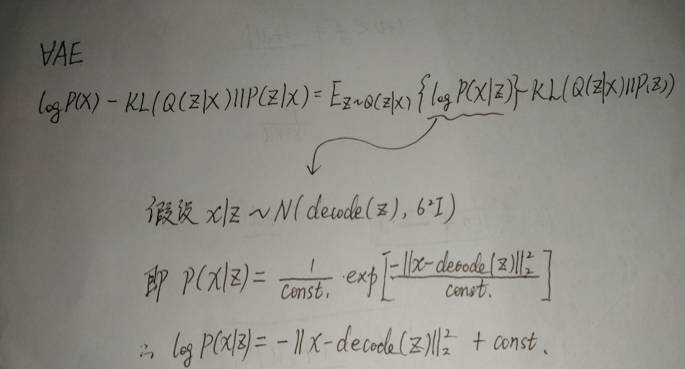 VAE
log P(X) - KL(Q(Z|X)||P(Z|X) = E_{Z~Q(Z|X)} {log P(X|Z)} - KL(Q(Z|X)||P(Z))
假设 x|z ~ N(decode(z), σ²I)
即 P(X|Z) = 1/const. · exp[-||x-decode(z)||₂²/const.]
∴ log P(X|Z) = -||x-decode(z)||₂² + const.